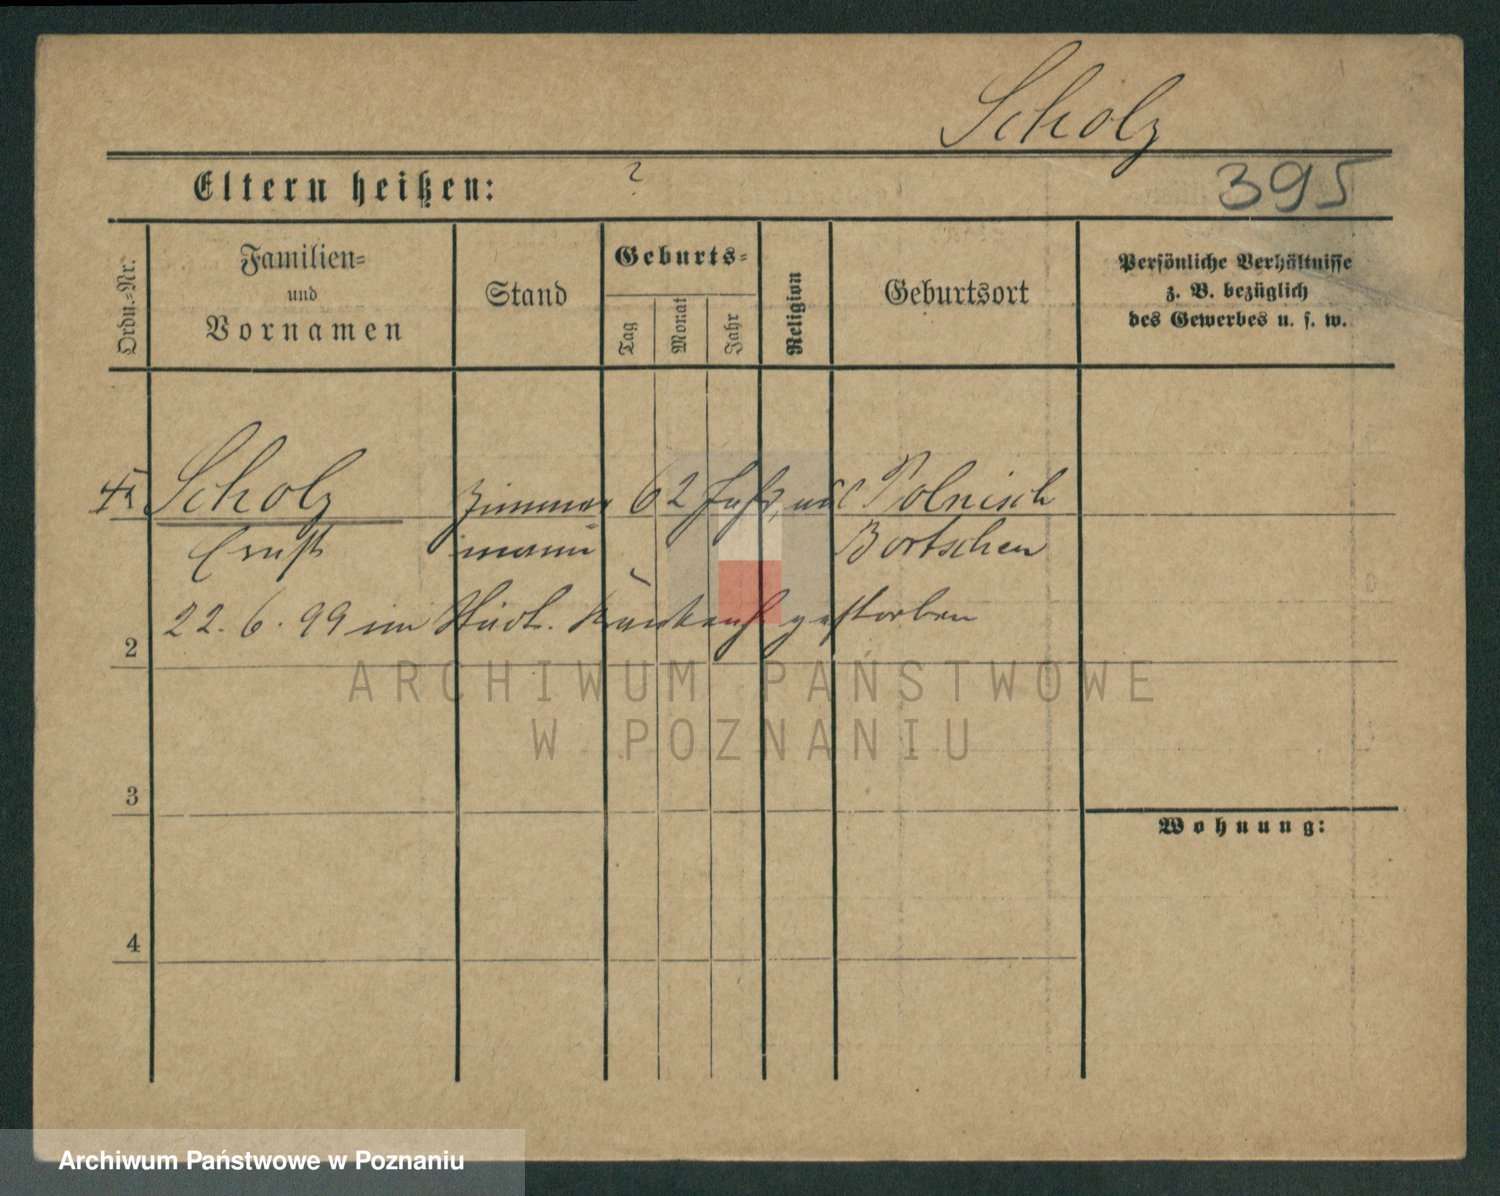 Scholz
Eltern heißen: ?
395
Ordn.-Nr.
Familien-
und
Vornamen
Stand
Geburts-
Tag
Monat
Jahr
Religion
Geburtsort
Persönliche Verhältnisse
z. B. bezüglich
des Gewerbes u. s. w.
Scholz Zimmer 62 Jahr Polnisch
Ernst mann Bortschen
22. 6. 99 im Städt. gestorben
2
ARCHIWUM PAŃSTWOWE
W POZNANIU
3
Wohnung:
4
Archiwum Państwowe w Poznaniu